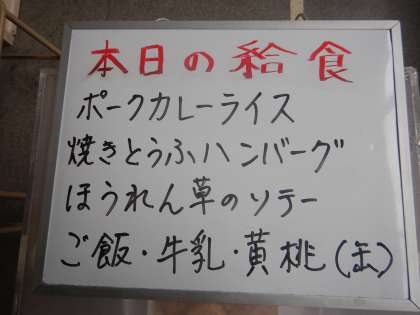 本日の給食
ポークカレーライス
焼きとうふハンバーグ
ほうれん草のソテー
ご飯・牛乳・黄桃(缶)